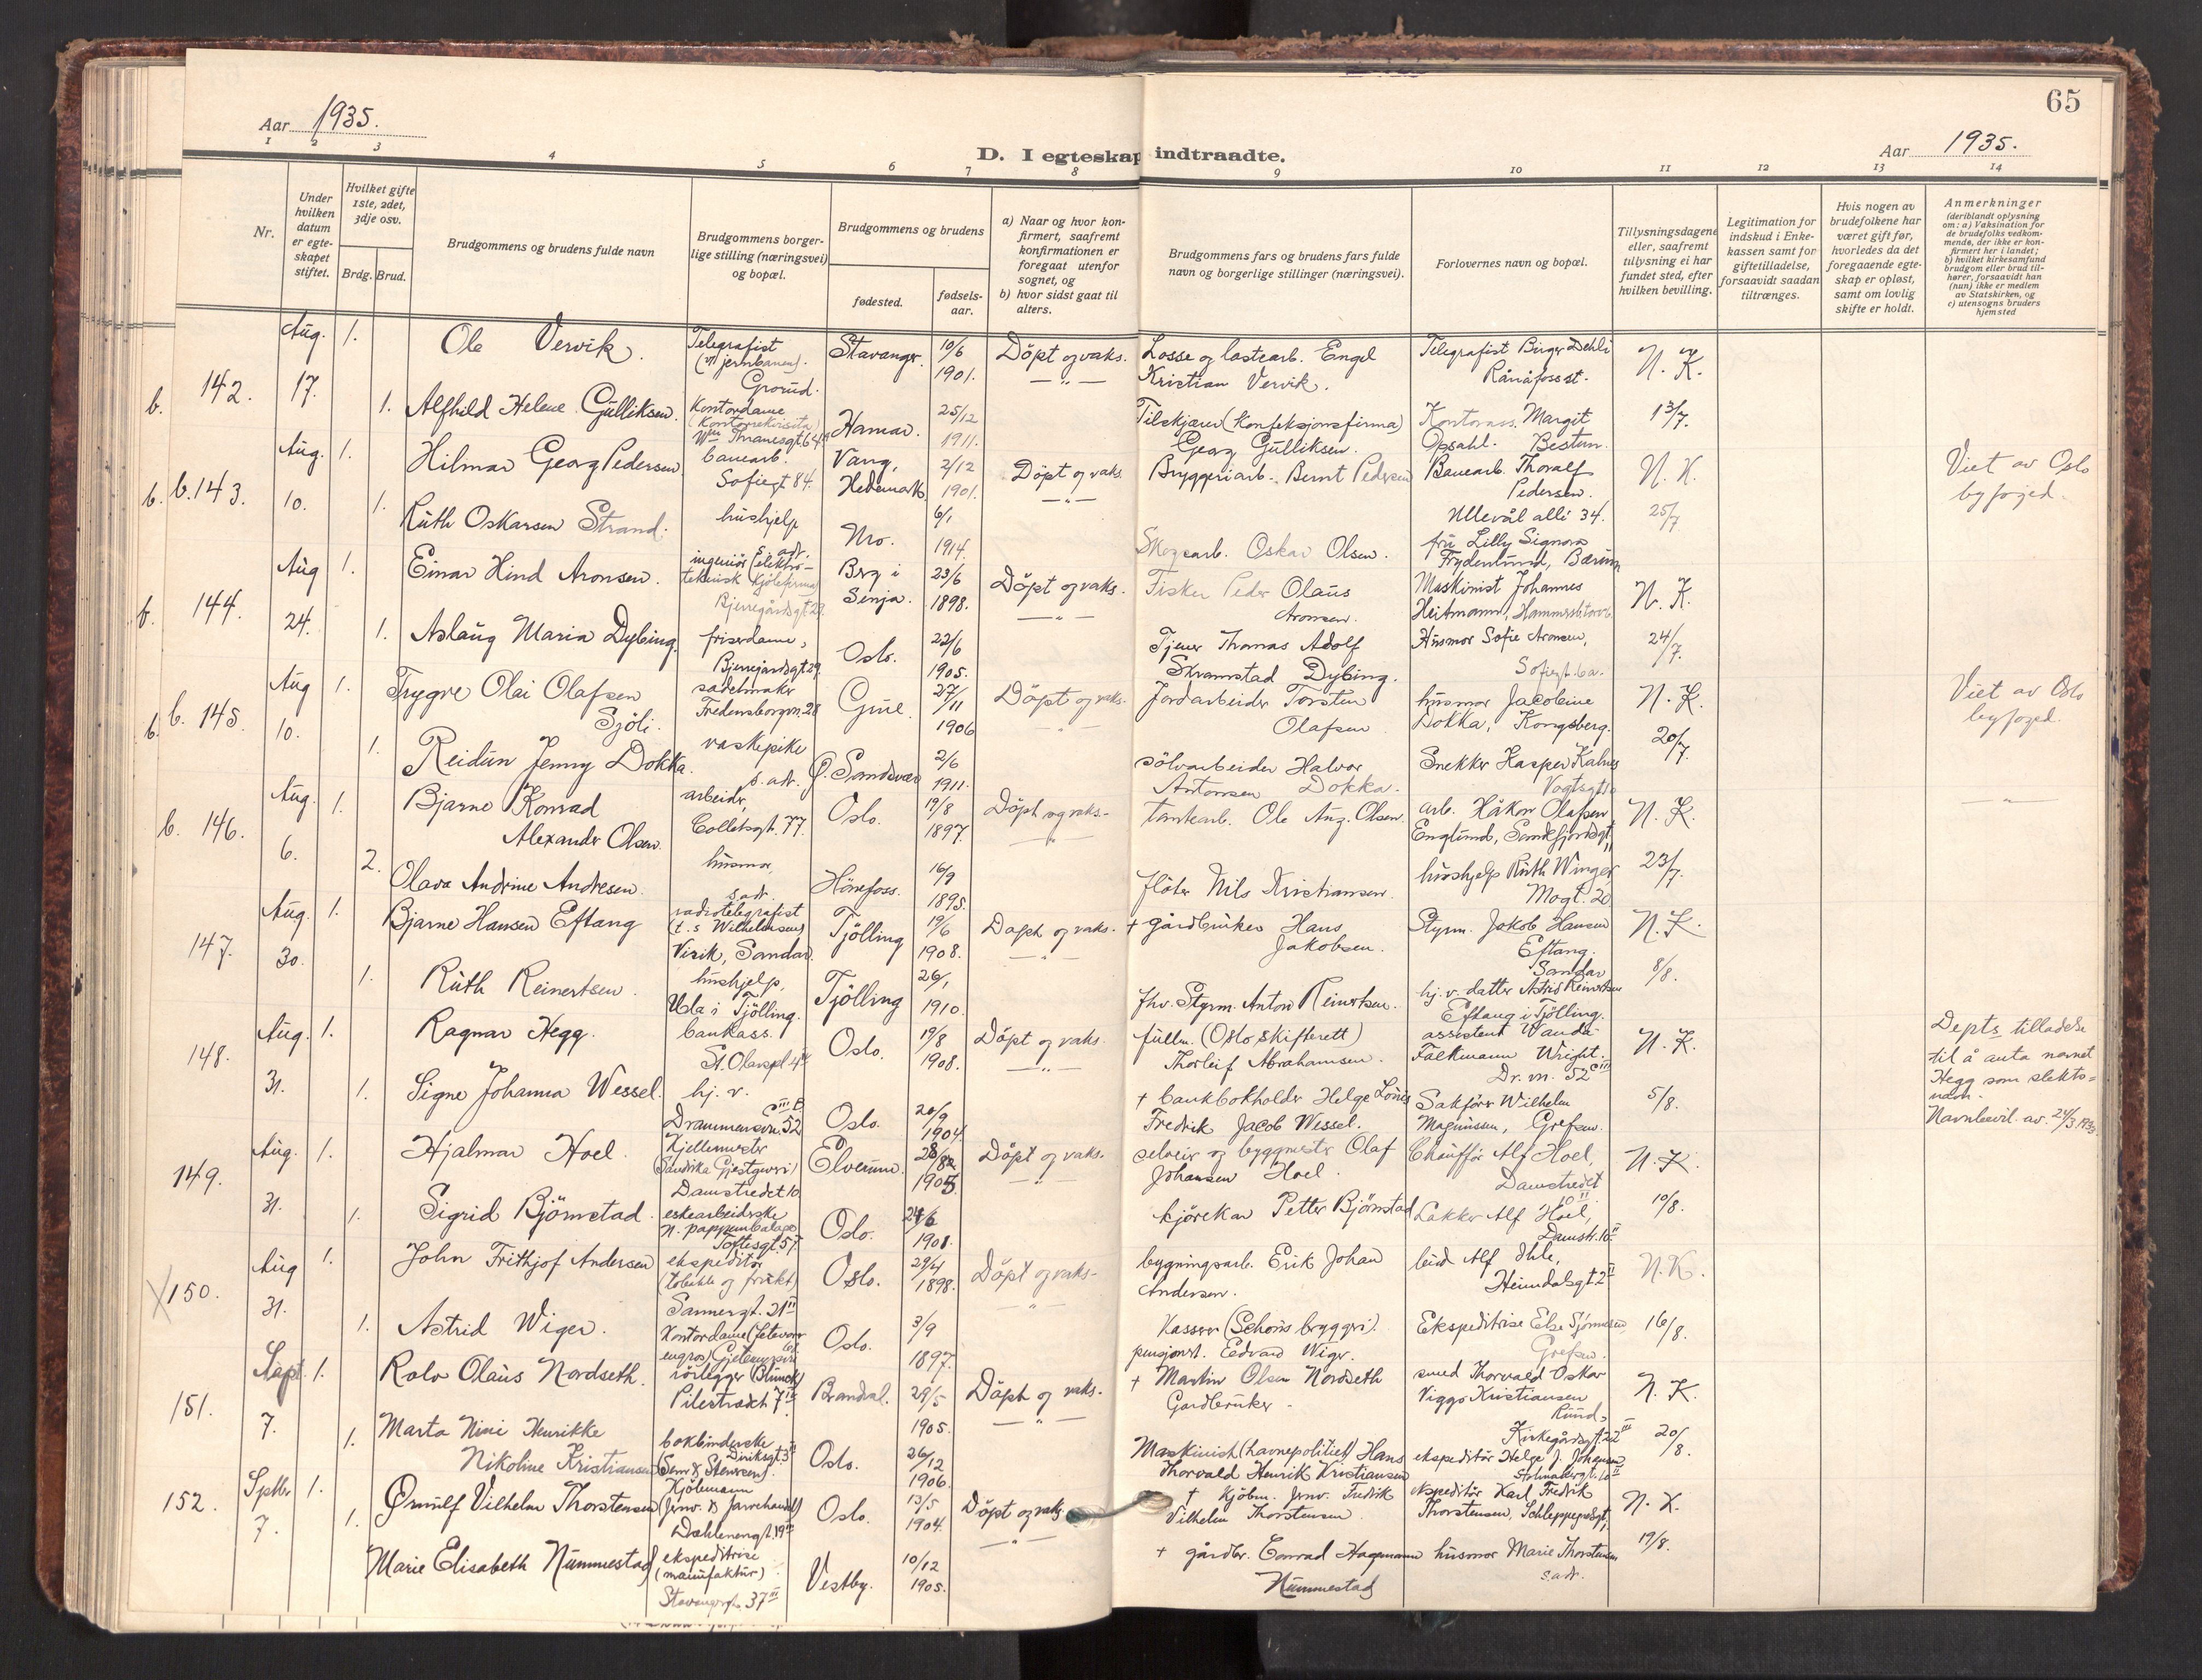 65
Aar 1935.
Aar 1935.
D. I egteskap indtraadte.
1 2 3 4 5 6 7 8 9 10 11 12 13 14
Nr.
Under hvilken datum er egteskapet stiftet.
Hvilket gifte 1ste, 2det, 3dje osv.
Brdg. Brud.
Brudgommens og brudens fulde navn
Brudgommens borgerlige stilling (næringsvei) og bopæl.
Brudgommens og brudens
fødested.
fødselsaar.
a) Naar og hvor konfirmert, saafremt konfirmationen er foregaat utenfor sognet, og
b) hvor sidst gaat til alters.
Brudgommens fars og brudens fars fulde navn og borgerlige stillinger (næringsvei).
Forlovernes navn og bopæl.
Tillysningsdagene eller, saafremt tillysning ei har fundet sted, efter hvilken bevilling.
Legitimation for indskud i Enkekassen samt for giftetilladelse, forsaavidt saadan tiltrænges.
Hvis nogen av brudefolkene har været gift før, hvorledes da det foregaaende egteskap er opløst, samt om lovlig skifte er holdt.
Anmerkninger
(deriblandt oplysning om: a) Vaksination for de brudefolks vedkommende, der ikke er konfirmert her i landet;
b) hvilket kirkesamfund brudgom eller brud tilhører, forsaavidt han (hun) ikke er medlem av Statskirken, og
c) utensogns bruders hjemsted
b. 142. Aug. 17. 1. Ole Vervik. Telegrafist (v/ jernbanen). Grorud. Stavanger. 10/6 1901. Döpt og vaks. Losse og lastearb. Engel Kristian Vervik. Telegrafist Birger Dehli Rånåfoss st. N. K.
1. Alfhild Helene Gulliksen. Kontordame Hamar. 25/12 1911. —"— Tilskjærer (Konfeksjonsfirma) Georg Gulliksen. Margit Opsahl. Bestun. 13/7.
b. b. 143. Aug. 10. 1. Hilmar Georg Pedersen banearb. Sofiegt 84. Vang, Hedemark. 2/12 1901. Döpt og vaks. Bryggeriarb. Bernt Pedersen Banearb. Thoralf Pedersen. Ullevål allé 34. N. K. Viet av Oslo byfoged.
1. Ruth Oskarsen Strand. hushjelp s. adr. 6/1 1914. —"— Oskar Olsen. fru Lilly Signora Frydenlund, Bærum 25/7
b. 144. Aug 24. 1. Einar Hind Aronsen. ingeniör (elektroteknisk kjölefirma) Bjerregårdsgt. 29. Berg i Senja. 23/6 1898. Döpt og vaks. Fisker Peder Olaus Aronsen. Maskinist Johannes Heitmann, N. K.
1. Aslaug Maria Dybing. friserdame, Bjerregårdsgt 29. Oslo. 22/6 1905. —"— Tjener Thomas Adolf Skramstad Dybing. Husmor Sofie Aronsen, Sofiesgt. 6a. 24/7.
b. b. 145. Aug 10. 1. Trygve Olai Olafsen Sjöli. sadelmaker Fredensborgvn. 28 27/11 1906 Döpt og vaks. Jordarbeider Torsten Olafsen husmor Jacobine Dokka, Kongsberg. N. K. Viet av Oslo byfoged.
1. Reidun Jenny Dokka. vaskepike s. adr. Ö. Sandsvær 2/6 1911. —"— sölvarbeider Halvor Antonsen Dokka. Snekker Kasper Kalnes 20/7.
b. 146. Aug. 6. 1. Bjarne Konrad Alexander Olsen. arbeider, Colletsgt. 77. Oslo. 19/8 1897. Döpt og vaks. tomtearb. Ole Aug. Olsen. arb. Håkon Olafsen Englund, Sandefjordsgt. N. K. —"—
2. Olava Andrine Andresen. husmor, s. adr. Hönefoss. 16/9 1895. —"— flöter Nils Kristiansen. hushjelp Ruth Winger Mogt. 20 23/7.
147. Aug. 30. 1. Bjarne Hansen Eftang radiotelegrafist (t. s Wilhelmsen) Virik, Sandar. Tjölling 19/6 1908. Döpt og vaks. + gårdbruker Hans Jakobsen. Styrm. Jakob Hansen Eftang. Sandar N. K.
1. Ruth Reinertsen. hushjelp, Ula i Tjölling. Tjölling 26/1 1910. —"— fhv. Styrm. Anton Reinertsen. hj. v. datter Astrid Reinertsen Eftang i Tjölling. 8/8.
148. Aug. 31. 1. Ragnar Hegg. bankass. St. Olavspl. Oslo. 19/8 1908. Döpt og vaks. fullm. (Oslo skifterett) Thorleif Abrahamsen. assistent Wanda Falkmann Wright. Dr. vn. 52 C III N. K. Depts tilladelse til å anta navnet Hegg som slektsnavn. Navnbevil. av. 24/3 1933.
1. Signe Johanna Wessel. hj. v. Drammensvn. 52 C III B Oslo. 20/9 1904. —"— + bankbokholder Helge Fredrik Jacob Wessel. Sakförer Wilhelm Magnussen, Grefsen. 5/8.
149. Aug. 31. 1. Hjalmar Hoel. Kjellermester (Sandvika Gjestgiveri) Damstredet 10 Elverum. Döpt og vaks. selveier og byggmester Olaf Johansen Hoel. Chaufför Alf Hoel, Damstredet 10 II N. K.
1. Sigrid Björnstad. eskearbeiderske n. pappemballage Toftesgt. 57. Oslo. 24/6 1901. —"— kjörekar Petter Björnstad Lakker Alf Hoel, Damstr. 10 II 10/8.
150. Aug 31. 1. John Frithjof Andersen ekspeditör (tobakk og frukt) Sannergt. 31 II Oslo. 29/4 1898. Döpt og vaks. bygningsarb. Erik Johan Andersen. Alf Ihle, Heimdalsgt 2 II N. K.
1. Astrid Wiger. Kontordame Oslo. 3/9 1897. —"— Kasserer (Schous bryggeri). pensjonert. Edvard Wiger. Ekspeditrise Else Grefsen. 16/8.
151. Sept. 7. 1. Rolv Olaus Nordseth. rörlegger Pilestredet 7 II Brandval. 29/5 1905. Döpt og vaks. + Martin Olsen Nordseth Gardbruker. smed Thorvald Oskar Viggo Kristiansen Ruud, N. K.
1. Marta Nini Henrikke Nikoline Kristiansen bokbinderske Diriksgt. 3 II (Sem & Stenersen). Oslo. 26/12 1906. —"— Maskinist (havnepolitiet) Hans Thorvald Henrik Kristiansen ekspeditör Helge J. Johansen 20/8.
152. Septbr 7. 1. Ørnulf Vilhelm Thorstensen Kjöbmann (Jernv. & farvehandel) Dælenengt. 19 II Oslo. 13/5 1904. Döpt og vaks + Kjöbm. Jernv. Fredrik Vilhelm Thorstensen. ekspeditör Karl Fredrik Thorstensen, Schleppegrelsgt, N. K.
1. Marie Elisabeth Nummestad ekspeditrise (manufaktur) Stavangergt. 37 III Vestby. 10/12 1905. —"— + gårdbr. Conrad Hagemann Nummestad husmor Marie Thorstensen s. adr. 19/8.